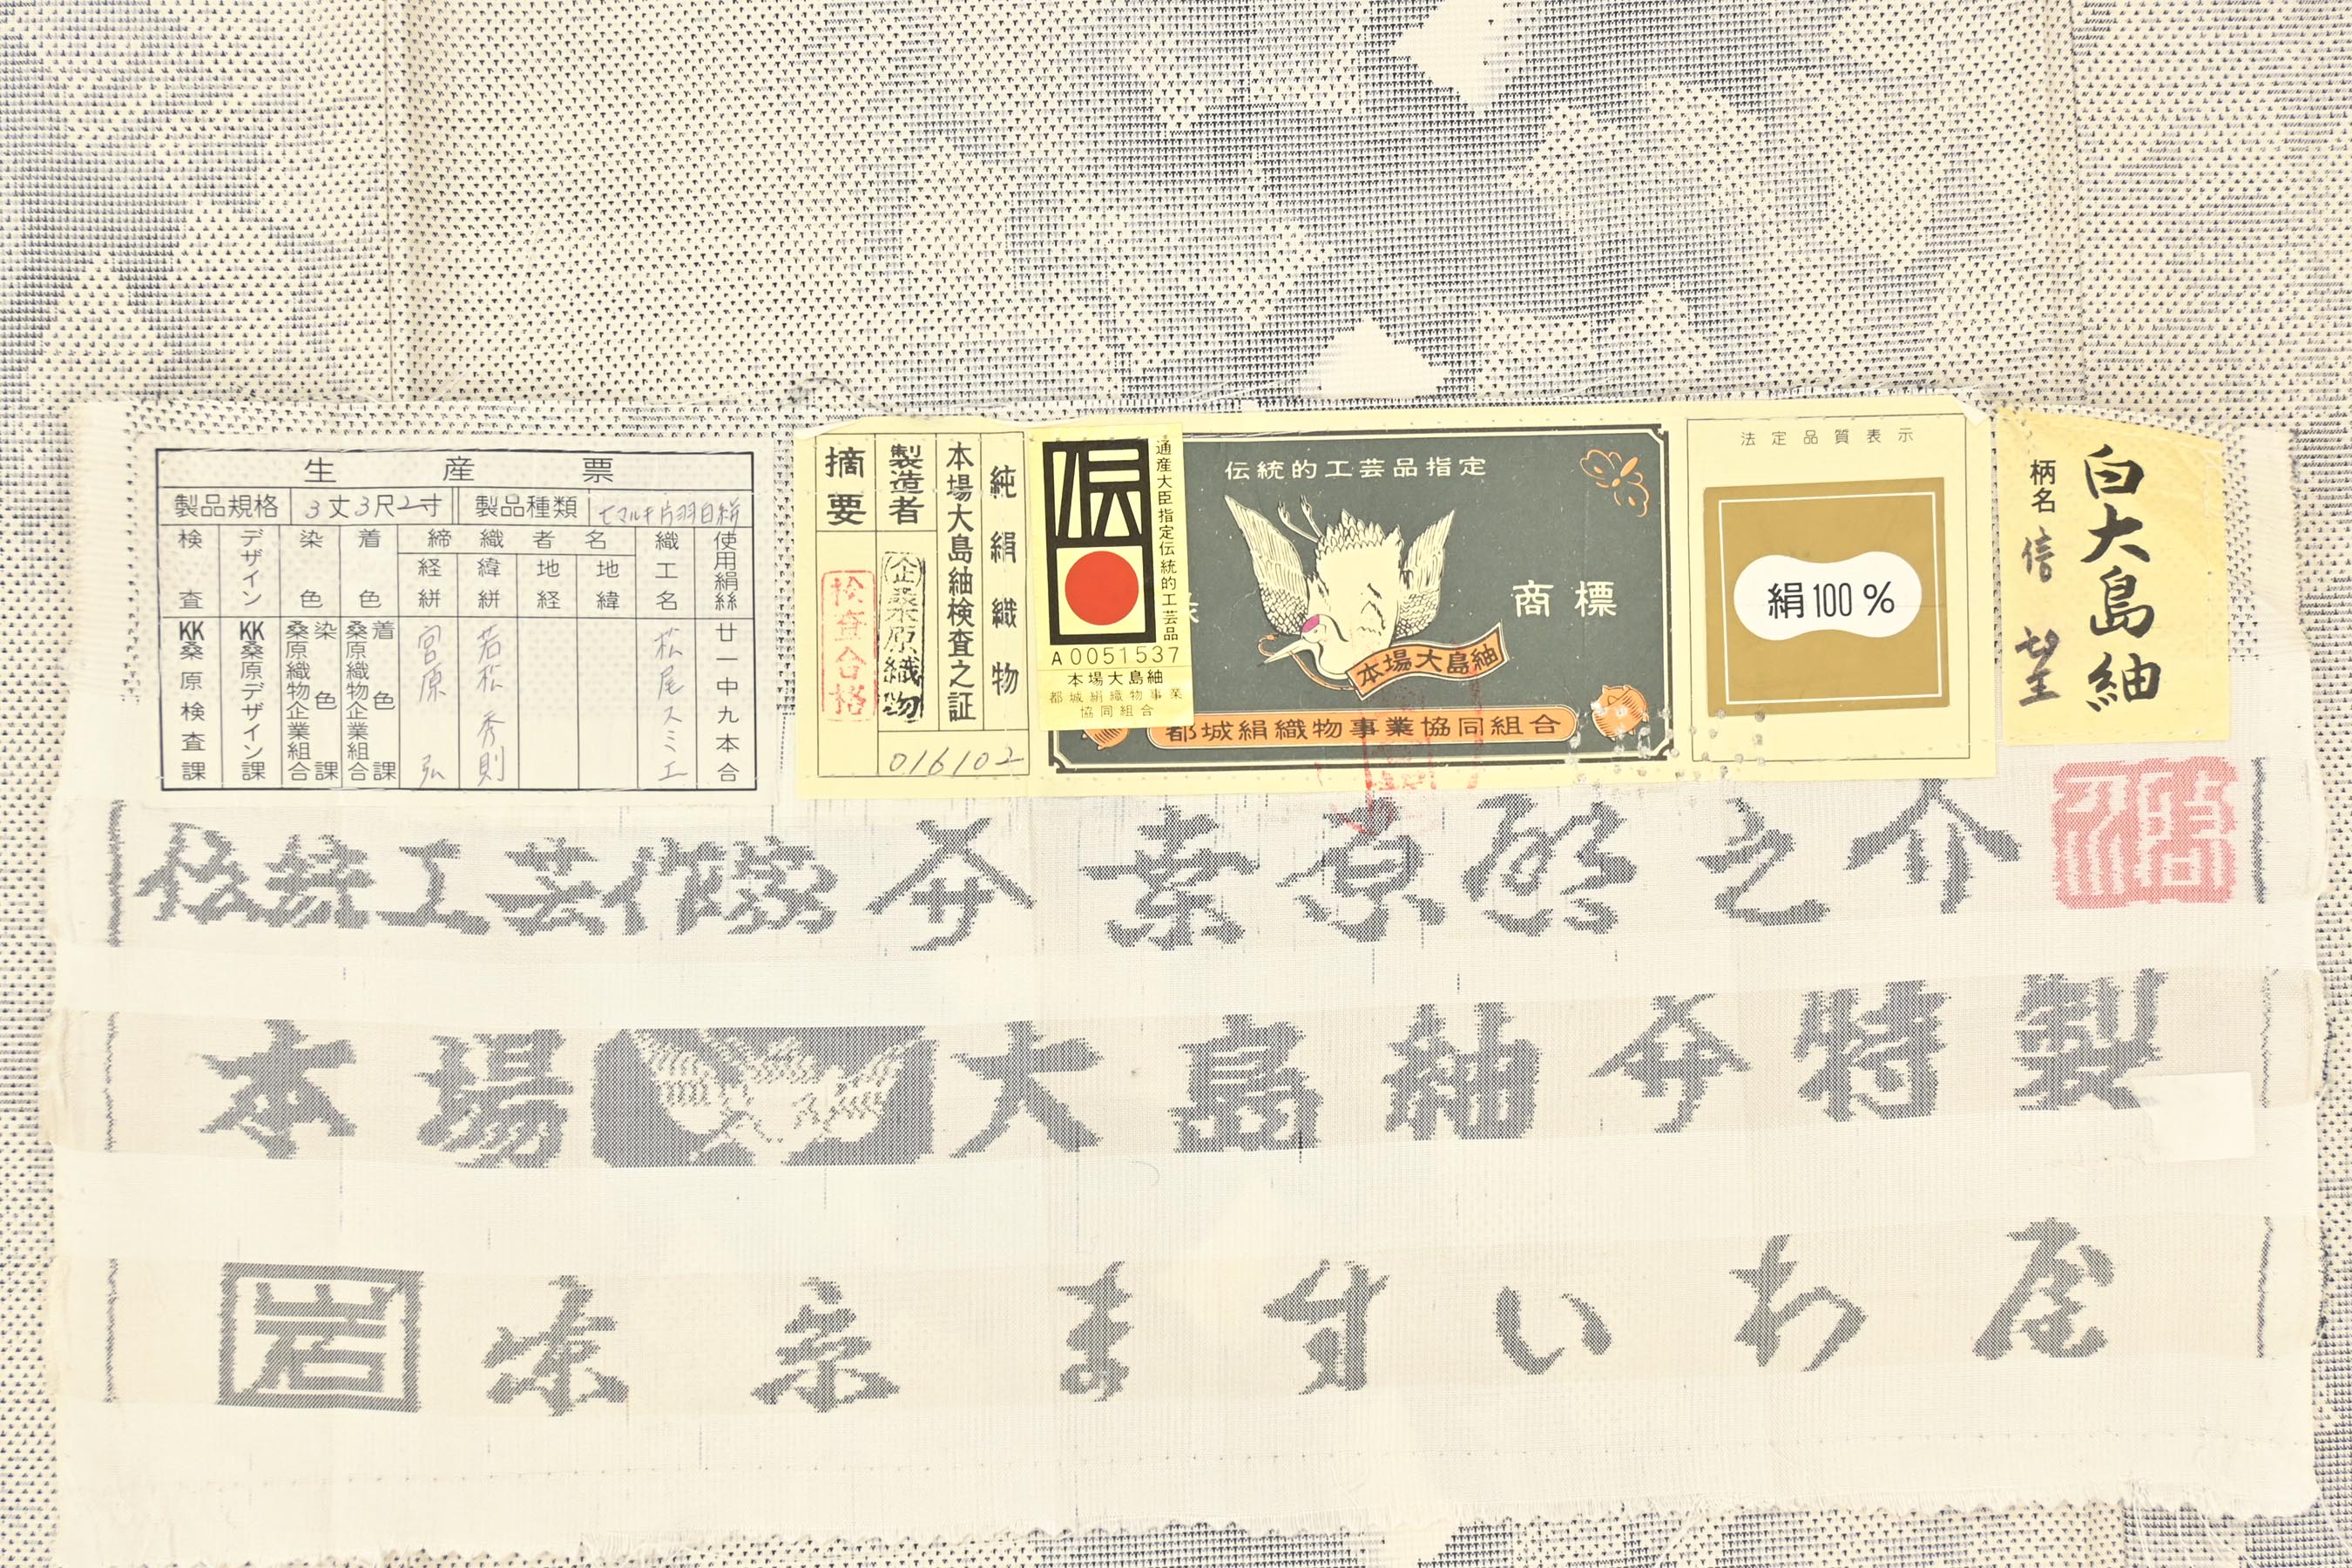 生産票
製品規格 3丈3尺2寸 製品種類 七マルキ片羽白絣
検査 デザイン 染色 着色 締織者名 織工名 使用絹絲
経絣 緯絣 地経 地緯
KK桑原検査課
KK桑原デザイン課
桑原織物企業組合 染色課
桑原織物企業組合 着色課
宮原 弘
若松 秀則
松尾スミエ
廿一中九本合
摘要
検査合格
製造者
桑原織物
本場大島紬検査之証
純絹織物
016102
伝
通産大臣指定伝統的工芸品
A0051537
本場大島紬
都城絹織物事業
協同組合
伝統的工芸品指定
商標
本場大島紬
都城絹織物事業協同組合
法定品質表示
絹100%
白大島紬
柄名 倍望
伝統工芸作家 桑原啓之介
本場大島紬 特製
岩 京ますいわ屋